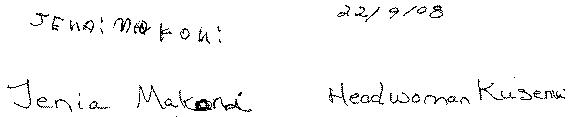 JENAI MAKONI 22/9/08
Jenia Makoni Headwoman Kuseni